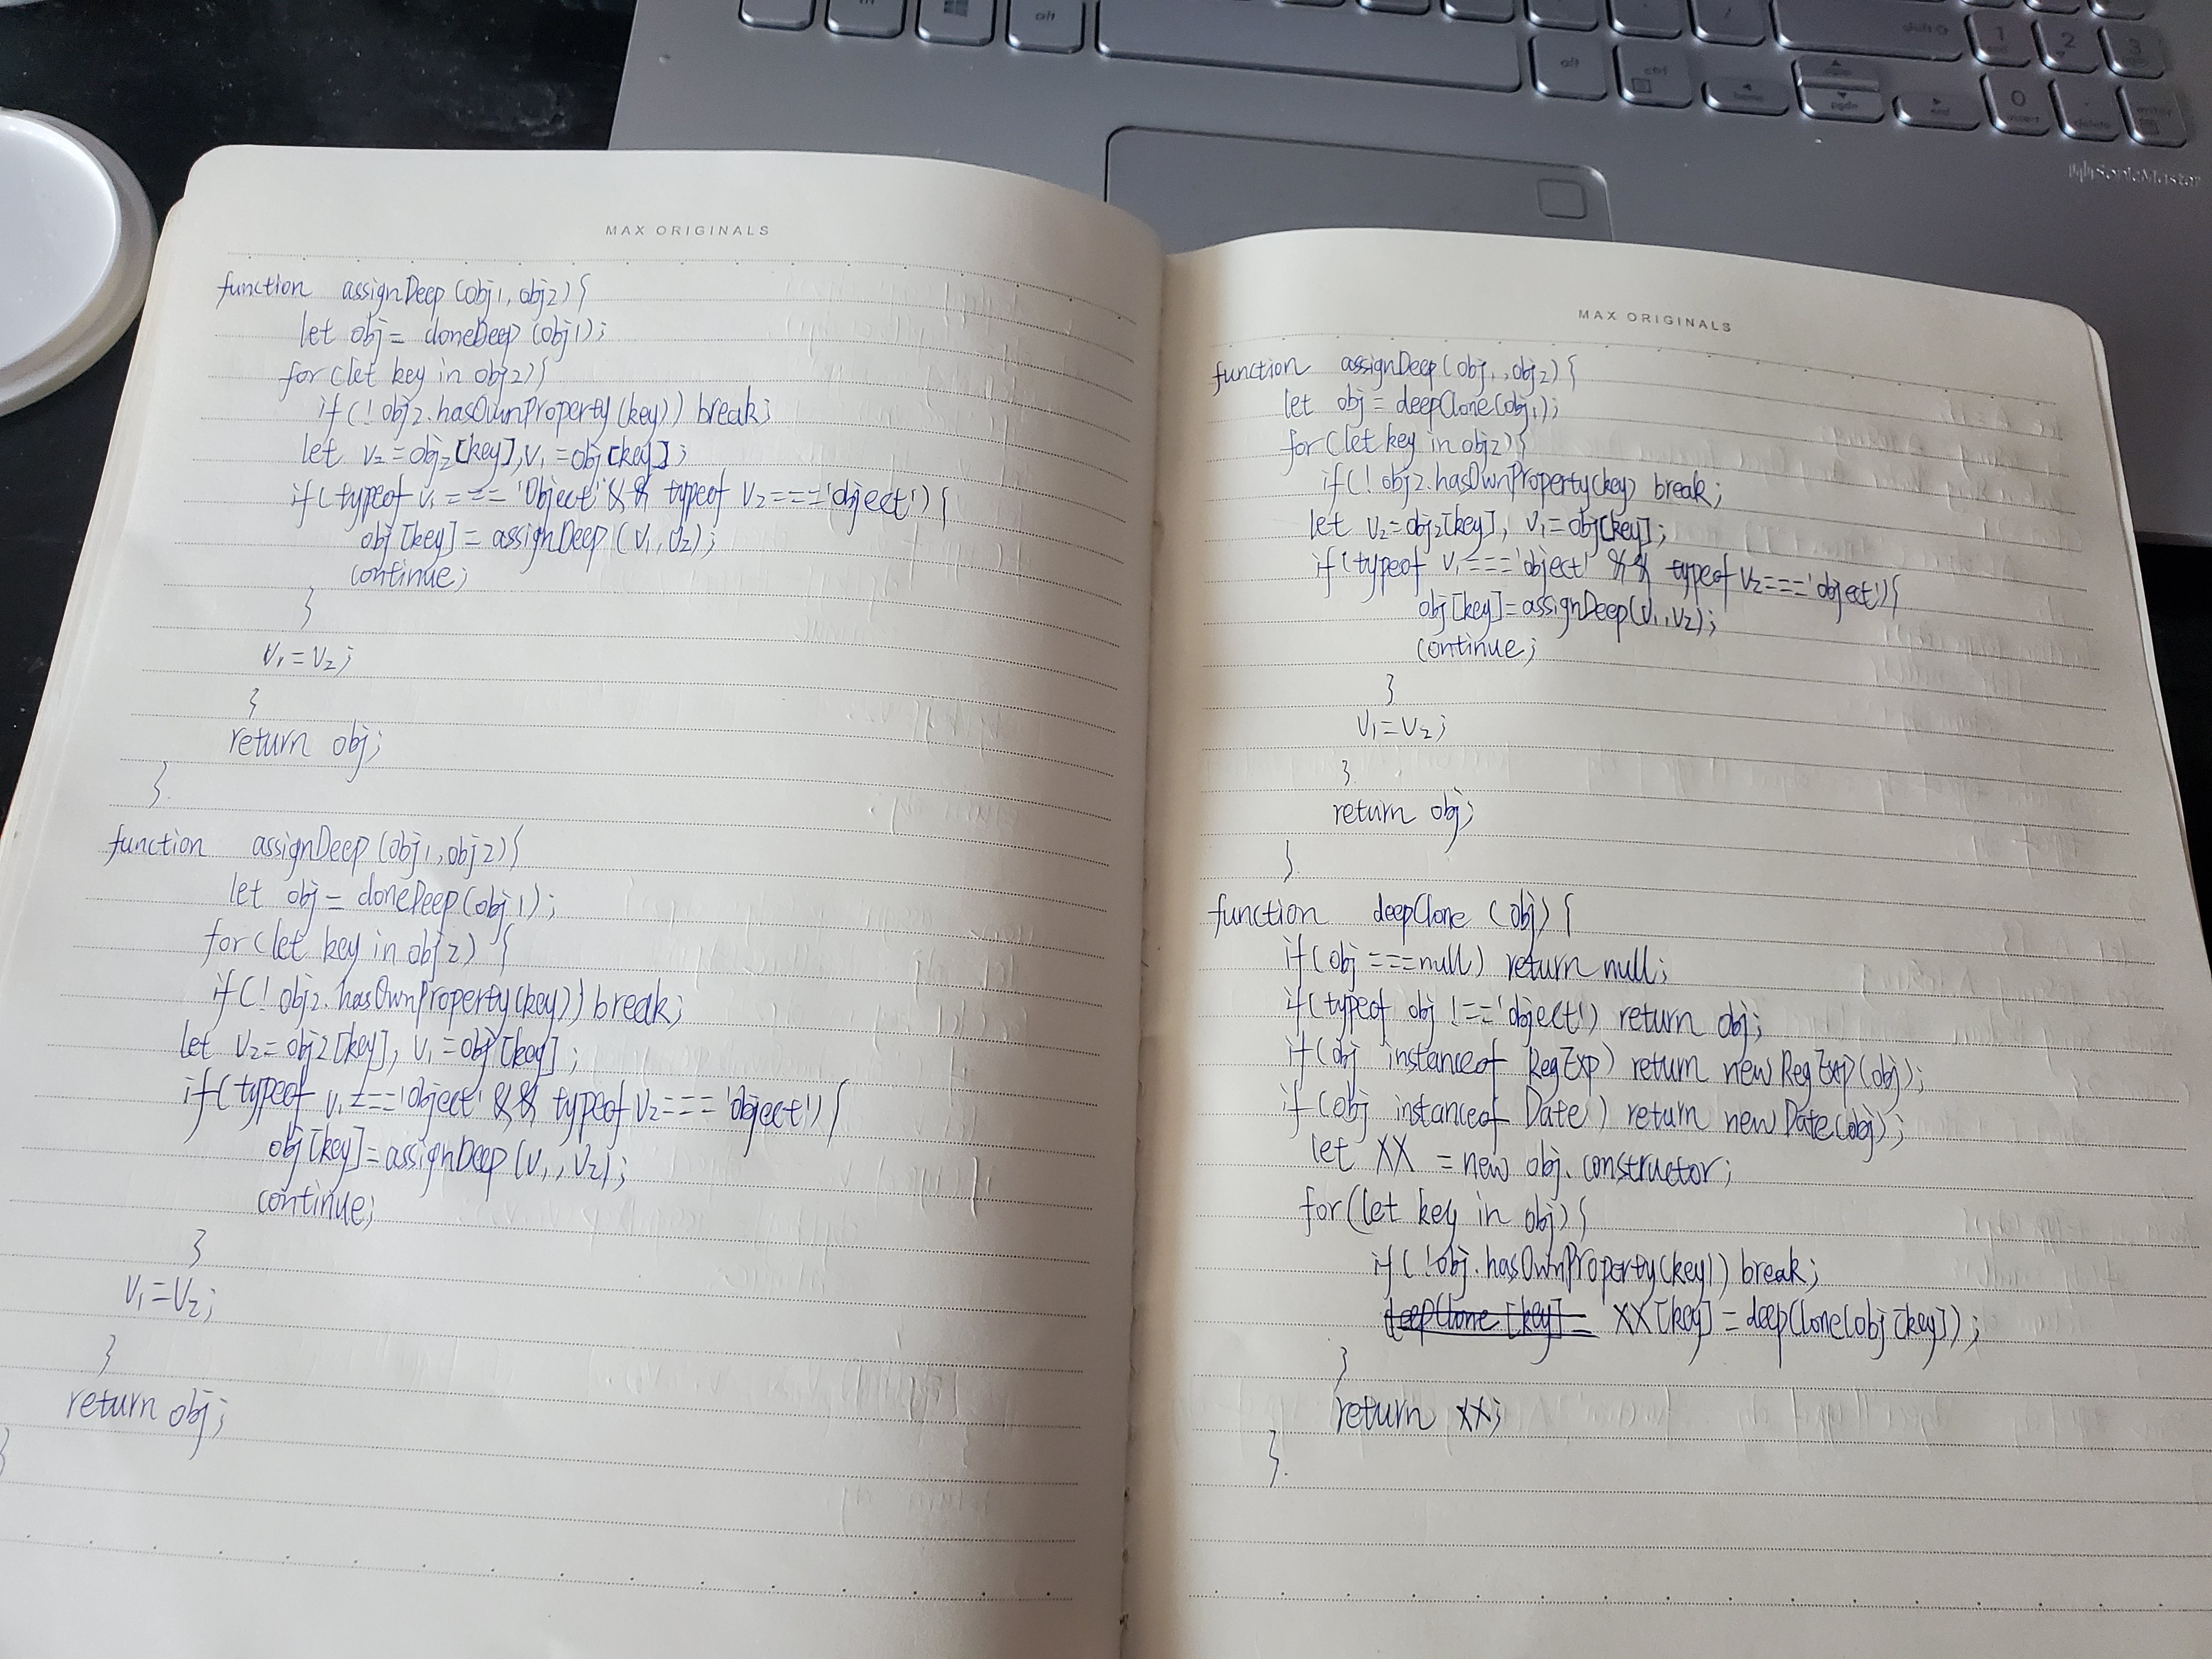 MAX ORIGINALS
function assignDeep (obj1, obj2) {
let obj = cloneDeep (obj1);
for (let key in obj2) {
if (! obj2.hasOwnProperty (key)) break;
let v2 = obj2 [key], v1 = obj [key];
if ( typeof v1 === 'Object' && typeof v2 === 'object') {
obj [key] = assignDeep (v1, v2);
continue;
}
v1 = v2;
}
return obj;
}.
function assignDeep (obj1, obj2) {
let obj = cloneDeep (obj1);
for (let key in obj2) {
if (! obj2. hasOwnProperty (key)) break;
let v2 = obj2 [key], v1 = obj [key];
if ( typeof v1 === 'Object' && typeof v2 === 'Object') {
obj [key] = assignDeep (v1, v2);
continue;
}
v1 = v2;
}
return obj;
}
MAX ORIGINALS
function assignDeep (obj1, obj2) {
let obj = deepClone (obj1);
for (let key in obj2) {
if (! obj2.hasOwnProperty (key) break;
let v2 = obj2 [key], v1 = obj [key];
if ( typeof v1 === 'object' && typeof v2 === 'object') {
obj [key] = assignDeep (v1, v2);
continue;
}
v1 = v2;
}.
return obj;
}.
function deepClone (obj) {
if (obj === null) return null;
if (typeof obj !== 'object') return obj;
if (obj instanceof RegExp) return new RegExp (obj);
if (obj instanceof Date) return new Date (obj);
let XX = new obj. constructor;
for (let key in obj) {
if ( !obj. hasOwnProperty (key)) break;
deepClone [key] = XX [key] = deepClone (obj [key]);
}
return XX;
}.
alt
alt
ctrl
home
pgdn
end
shift
1
end
2
3
0
insert
delete
enter
SonicMaster